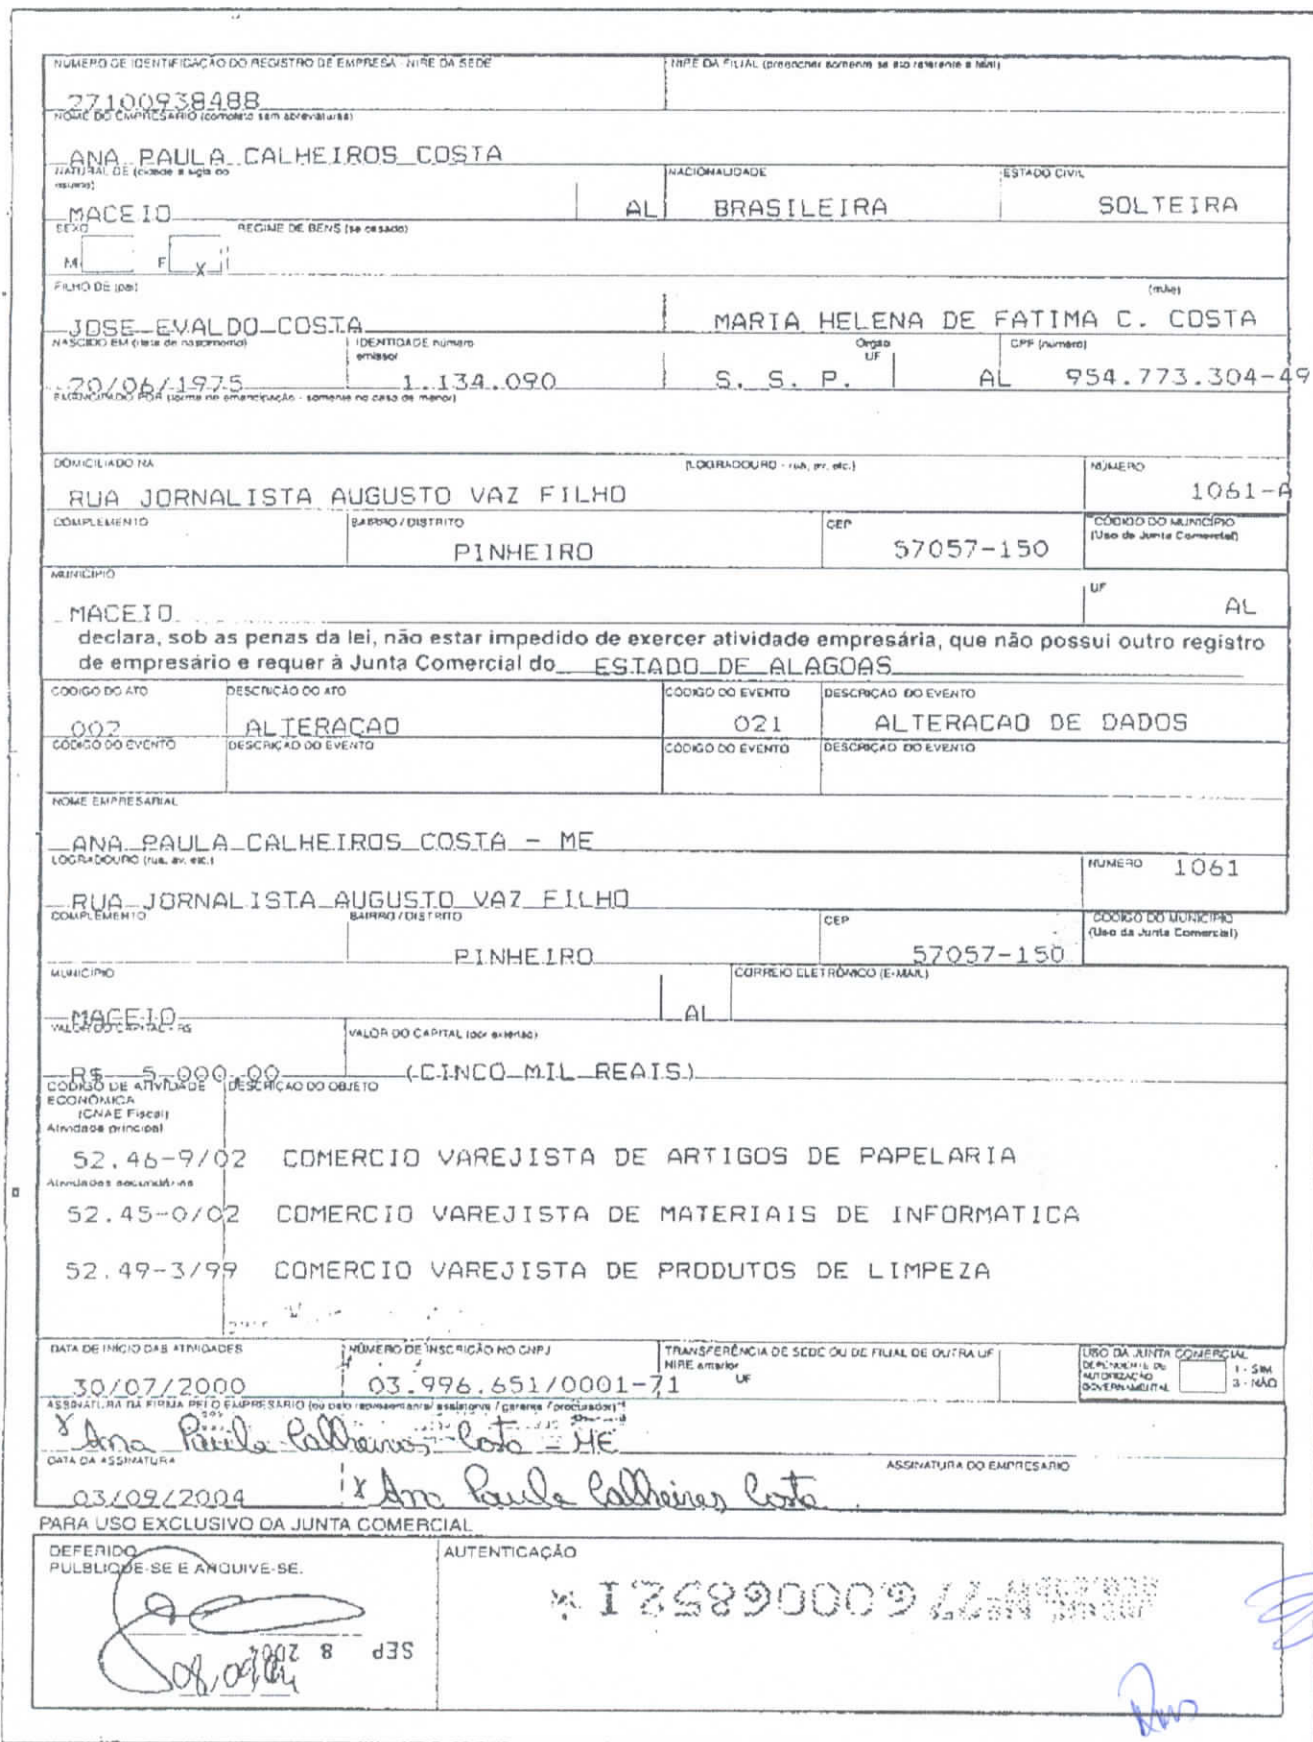 NÚMERO DE IDENTIFICAÇÃO DO REGISTRO DE EMPRESA - NIRE DA SEDE
NIRE DA FILIAL (preencher somente se ato referente a filial)
27100938488
NOME DO EMPRESÁRIO (completo sem abreviaturas)
ANA PAULA CALHEIROS COSTA
NATURAL DE (cidade e sigla do estado)
NACIONALIDADE
ESTADO CIVIL
MACEIO AL BRASILEIRA SOLTEIRA
SEXO
REGIME DE BENS (se casado)
M F X
FILHO DE (pai)
(mãe)
JOSE EVALDO COSTA MARIA HELENA DE FATIMA C. COSTA
NASCIDO EM (data de nascimento)
IDENTIDADE número
emissor
Orgão
UF
CPF (número)
20/06/1975 1.134.090 S. S. P. AL 954.773.304-49
EMANCIPADO POR (forma de emancipação - somente no caso de menor)
DOMICILIADO NA
(LOGRADOURO - rua, av, etc.)
NÚMERO
RUA JORNALISTA AUGUSTO VAZ FILHO 1061-A
COMPLEMENTO
BAIRRO / DISTRITO
CEP
CÓDIGO DO MUNICÍPIO
(Uso da Junta Comercial)
PINHEIRO 57057-150
MUNICÍPIO
UF
MACEIO AL
declara, sob as penas da lei, não estar impedido de exercer atividade empresária, que não possui outro registro
de empresário e requer à Junta Comercial do ESTADO DE ALAGOAS
CÓDIGO DO ATO
DESCRIÇÃO DO ATO
CÓDIGO DO EVENTO
DESCRIÇÃO DO EVENTO
002 ALTERAÇAO 021 ALTERACAO DE DADOS
CÓDIGO DO EVENTO
DESCRIÇÃO DO EVENTO
CÓDIGO DO EVENTO
DESCRIÇÃO DO EVENTO
NOME EMPRESARIAL
ANA PAULA CALHEIROS COSTA - ME
LOGRADOURO (rua, av, etc.)
NÚMERO 1061
RUA JORNALISTA AUGUSTO VAZ FILHO
COMPLEMENTO
BAIRRO / DISTRITO
CEP
CÓDIGO DO MUNICÍPIO
(Uso da Junta Comercial)
PINHEIRO 57057-150
MUNICÍPIO
CORREIO ELETRÔNICO (E-MAIL)
MACEIO AL
VALOR DO CAPITAL - R$
VALOR DO CAPITAL (por extenso)
R$ 5.000,00 (CINCO MIL REAIS)
CÓDIGO DE ATIVIDADE
ECONÔMICA
(CNAE Fiscal)
DESCRIÇÃO DO OBJETO
Atividade principal
52.46-9/02 COMERCIO VAREJISTA DE ARTIGOS DE PAPELARIA
Atividades secundárias
52.45-0/02 COMERCIO VAREJISTA DE MATERIAIS DE INFORMATICA
52.49-3/99 COMERCIO VAREJISTA DE PRODUTOS DE LIMPEZA
DATA DE INÍCIO DAS ATIVIDADES
NÚMERO DE INSCRIÇÃO NO CNPJ
TRANSFERÊNCIA DE SEDE OU DE FILIAL DE OUTRA UF
NIRE anterior
UF
USO DA JUNTA COMERCIAL
DEPENDENTE DE
AUTORIZAÇÃO
GOVERNAMENTAL
1 - SIM
3 - NÃO
30/07/2000 03.996.651/0001-71
ASSINATURA DA FIRMA PELO EMPRESÁRIO (ou pelo representante / assistente / gerente / procurador)
x Ana Paula Calheiros Costa - ME
DATA DA ASSINATURA
ASSINATURA DO EMPRESÁRIO
03/09/2004 x Ana Paula Calheiros Costa
PARA USO EXCLUSIVO DA JUNTA COMERCIAL
DEFERIDO
PULBLIQUE-SE E ARQUIVE-SE.
AUTENTICAÇÃO
SEP 8 2004
08/09/04